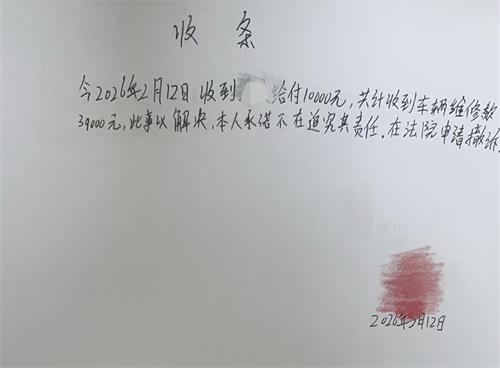 收条
今2026年2月12日收到 给付10000元,共计收到车辆维修款
39000元,此事以解决,本人承诺不在追究其责任.在法院申请撤诉.
2026年3月12日